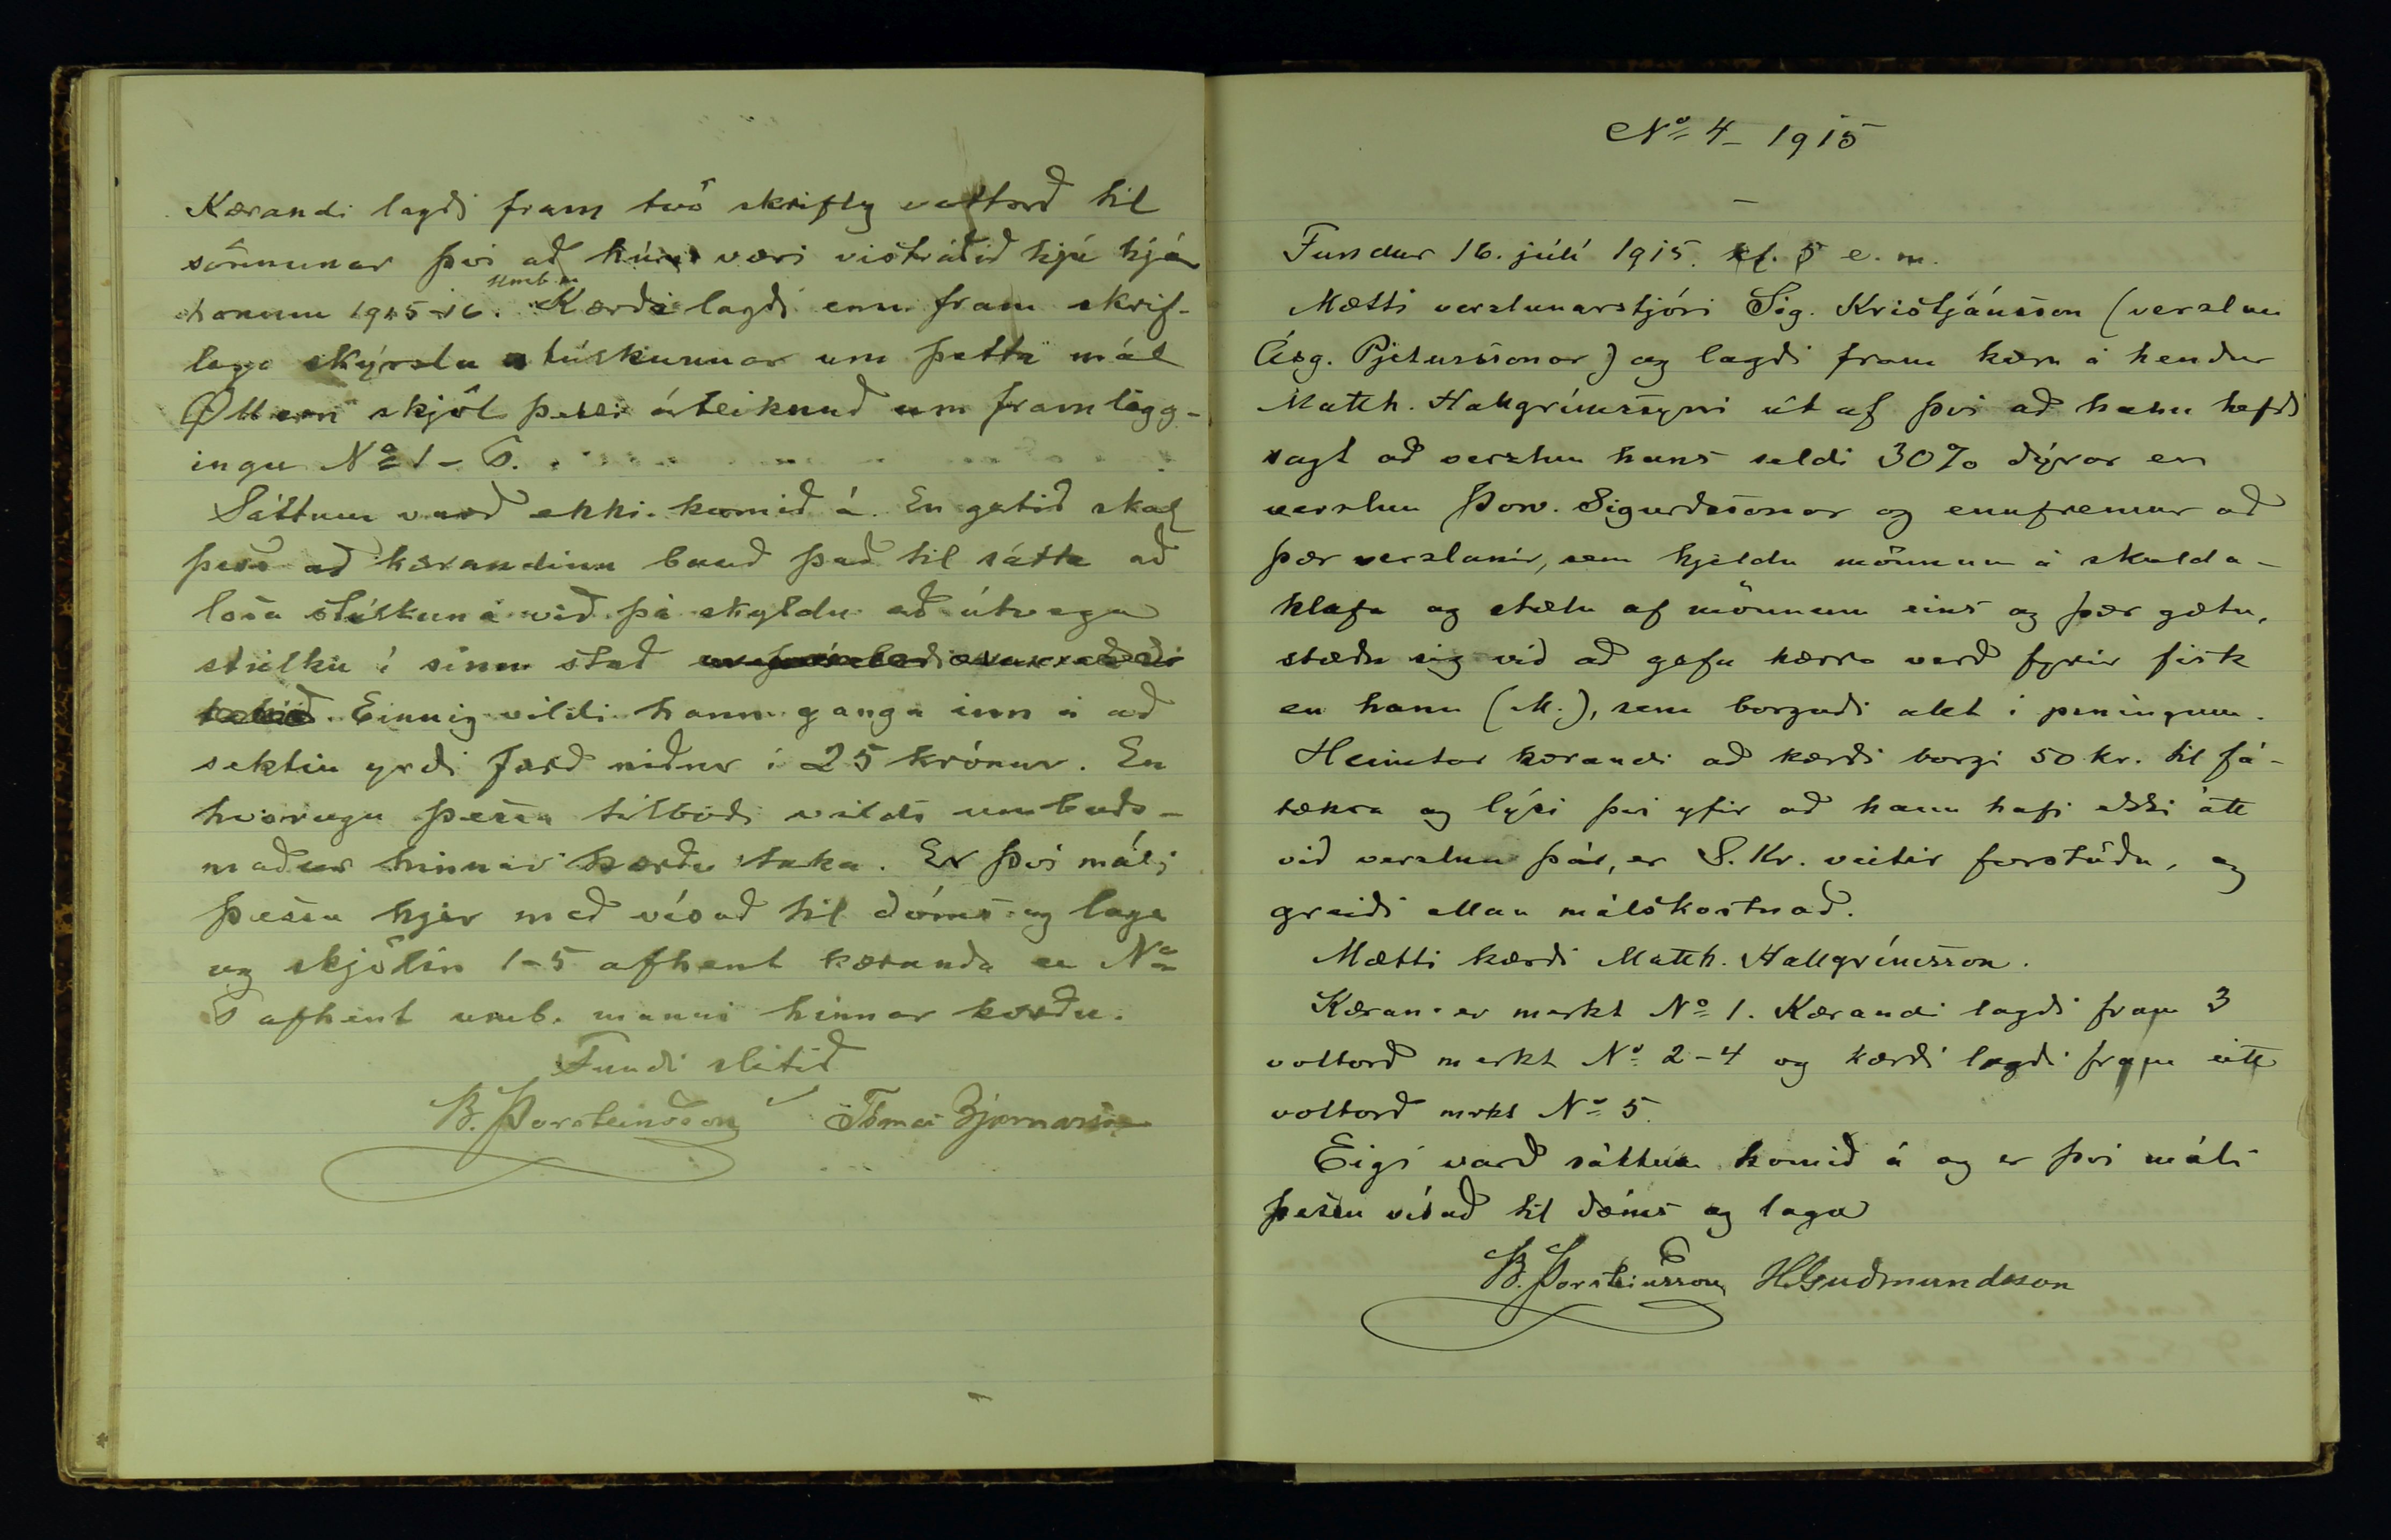 Kærandi lagði fram tvö skrifleg vottorð til
sönnunar því að hún væri vistráðið hjá hjá
honum 1915-16. umb.m. Kærðu lagði enn fram skrif-
lega skýrslu stúlkunnar um þetta mál
Öll eru skjöl þessi áteiknuð um framlögg-
ingu No 1 - 6.
Sáttum varð ekki komið á. En getið skal
þess að kærandinn bauð það til sátta að
losa stúlkuna við þá skyldu að útvega
stúlku í sinn stað
tekið. Einnig vildi hann ganga inn á að
sektin yrði færð niður í 25 krónur. En
hvorugu þessu tilboði vildi umboðs-
maður hinnar kærðu taka. Er því máli
þessu hjer með vísað til dóms og laga
og skjölin 1-5 afhent kæranda en No
6 afhent umb. manni hinnar kærðu.
Fundi slitið
B. Þorsteinsson Tómas Bjarnarson
No 4 - 1915
Fundur 16. júlí 1915. kl. 5 e. m.
Mætti verslunarstjóri Sig. Kristjánsson (verslun
Ásg. Pjeturssonar) og lagði fram kæru á hendur
Matth. Hallgrímssyni út af því að hann hefði
sagt að verzlun hans seldi 30% dýrar en
verslun Þorv. Sigurðssonar og ennfremur að
þær verslanir, sem hjeldu mönnum á skulda-
klafa og stælu af mönnum eins og þær gætu,
stæðu sig við að gefa hærra verð fyrir fisk
en hann (M.), sem borgaði allt í peningum.
Heimtar kærandi að kærði borgi 50 kr. til fá-
tækra og lýsi því yfir að hann hafi ekki átt
við verslun þá, er S. Kr. veitir forstöðu, og
greiði allan málskostnað.
Mætti kærði Matth. Hallgrímsson.
Kæran er merkt No 1. Kærandi lagði fram 3
vottorð merkt No 2-4 og kærði lagði fram eitt
vottorð mrkt No 5.
Eigi varð sáttum komið á og er því máli
þessu vísað til dóms og laga
B. Þorsteinsson HGuðmundsson